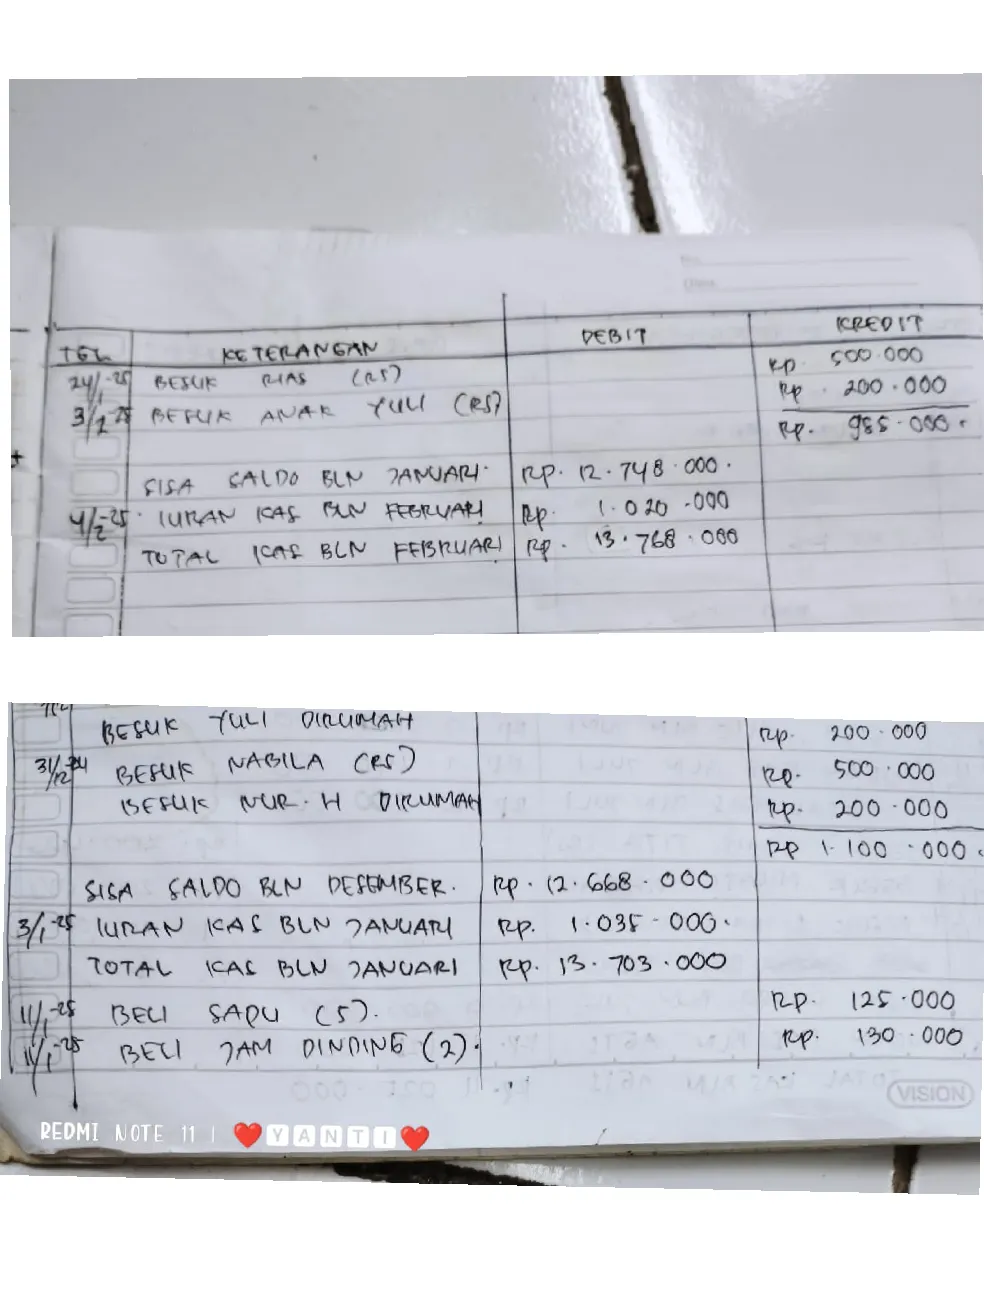 TGL KETERANGAN DEBIT KREDIT
24/1-25 BESUK RIAS (RS) Rp. 500.000
3/2-25 BESUK ANAK YULI (RS) Rp. 200.000
Rp. 955.000.
SISA SALDO BLN JANUARI. Rp. 12.748.000.
4/2-25. IURAN KAS BLN FEBRUARI Rp. 1.020.000
TOTAL KAS BLN FEBRUARI Rp. 13.768.000
BESUK YULI DIRUMAH Rp. 200.000
31/12-24 BESUK NABILA (RS) Rp. 500.000
BESUK NUR.H DIRUMAH Rp. 200.000
Rp 1.100.000.
SISA SALDO BLN DESEMBER. Rp. 12.668.000
3/1-25 IURAN KAS BLN JANUARI Rp. 1.035.000.
TOTAL KAS BLN JANUARI Rp. 13.703.000
11/1-25 BELI SAPU (5). Rp. 125.000
11/1-25 BELI JAM DINDING (2). Rp. 130.000
VISION
REDMI NOTE 11 | ❤️YANTI❤️